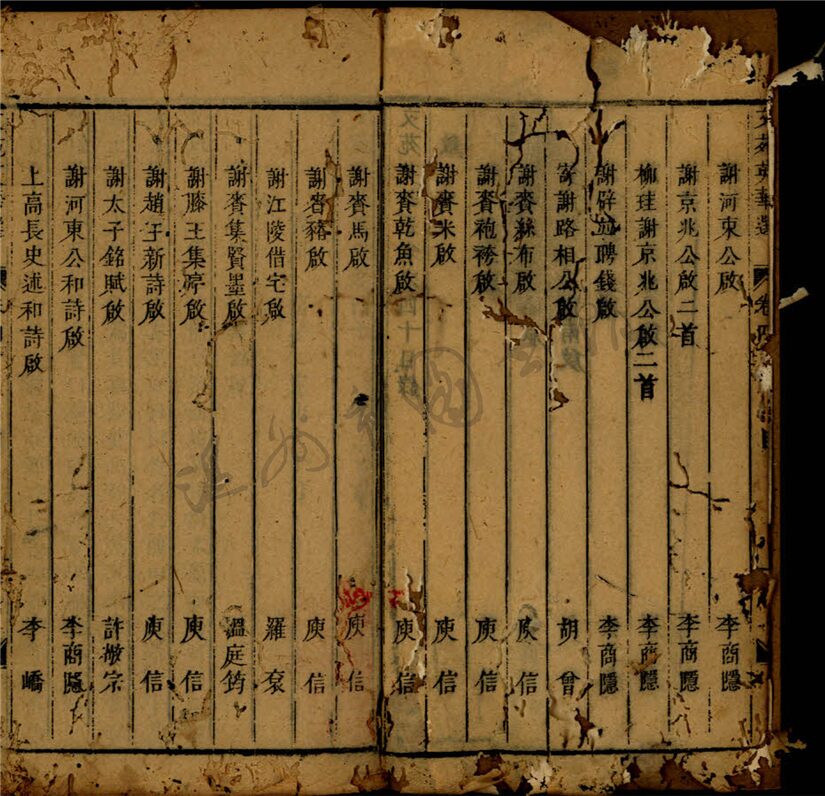 文苑英華選 卷四
謝河東公啟 李商隱
謝京兆公啟二首 李商隱
柳珪謝京兆公啟二首 李商隱
謝辟 聘錢啟 李商隱
寄謝路相公啟 胡曾
謝賚絲布啟 庾信
謝賚袍袴啟 庾信
謝賚米啟 庾信
謝賚乾魚啟 庾信
謝賚馬啟 庾信
謝賚豬啟 庾信
謝江陵借宅啟 羅袞
謝賚集賢墨啟 溫庭筠
謝滕王集序啟 庾信
謝趙王新詩啟 庾信
謝太子銘賦啟 許敬宗
謝河東公和詩啟 李商隱
上高長史述和詩啟 李嶠